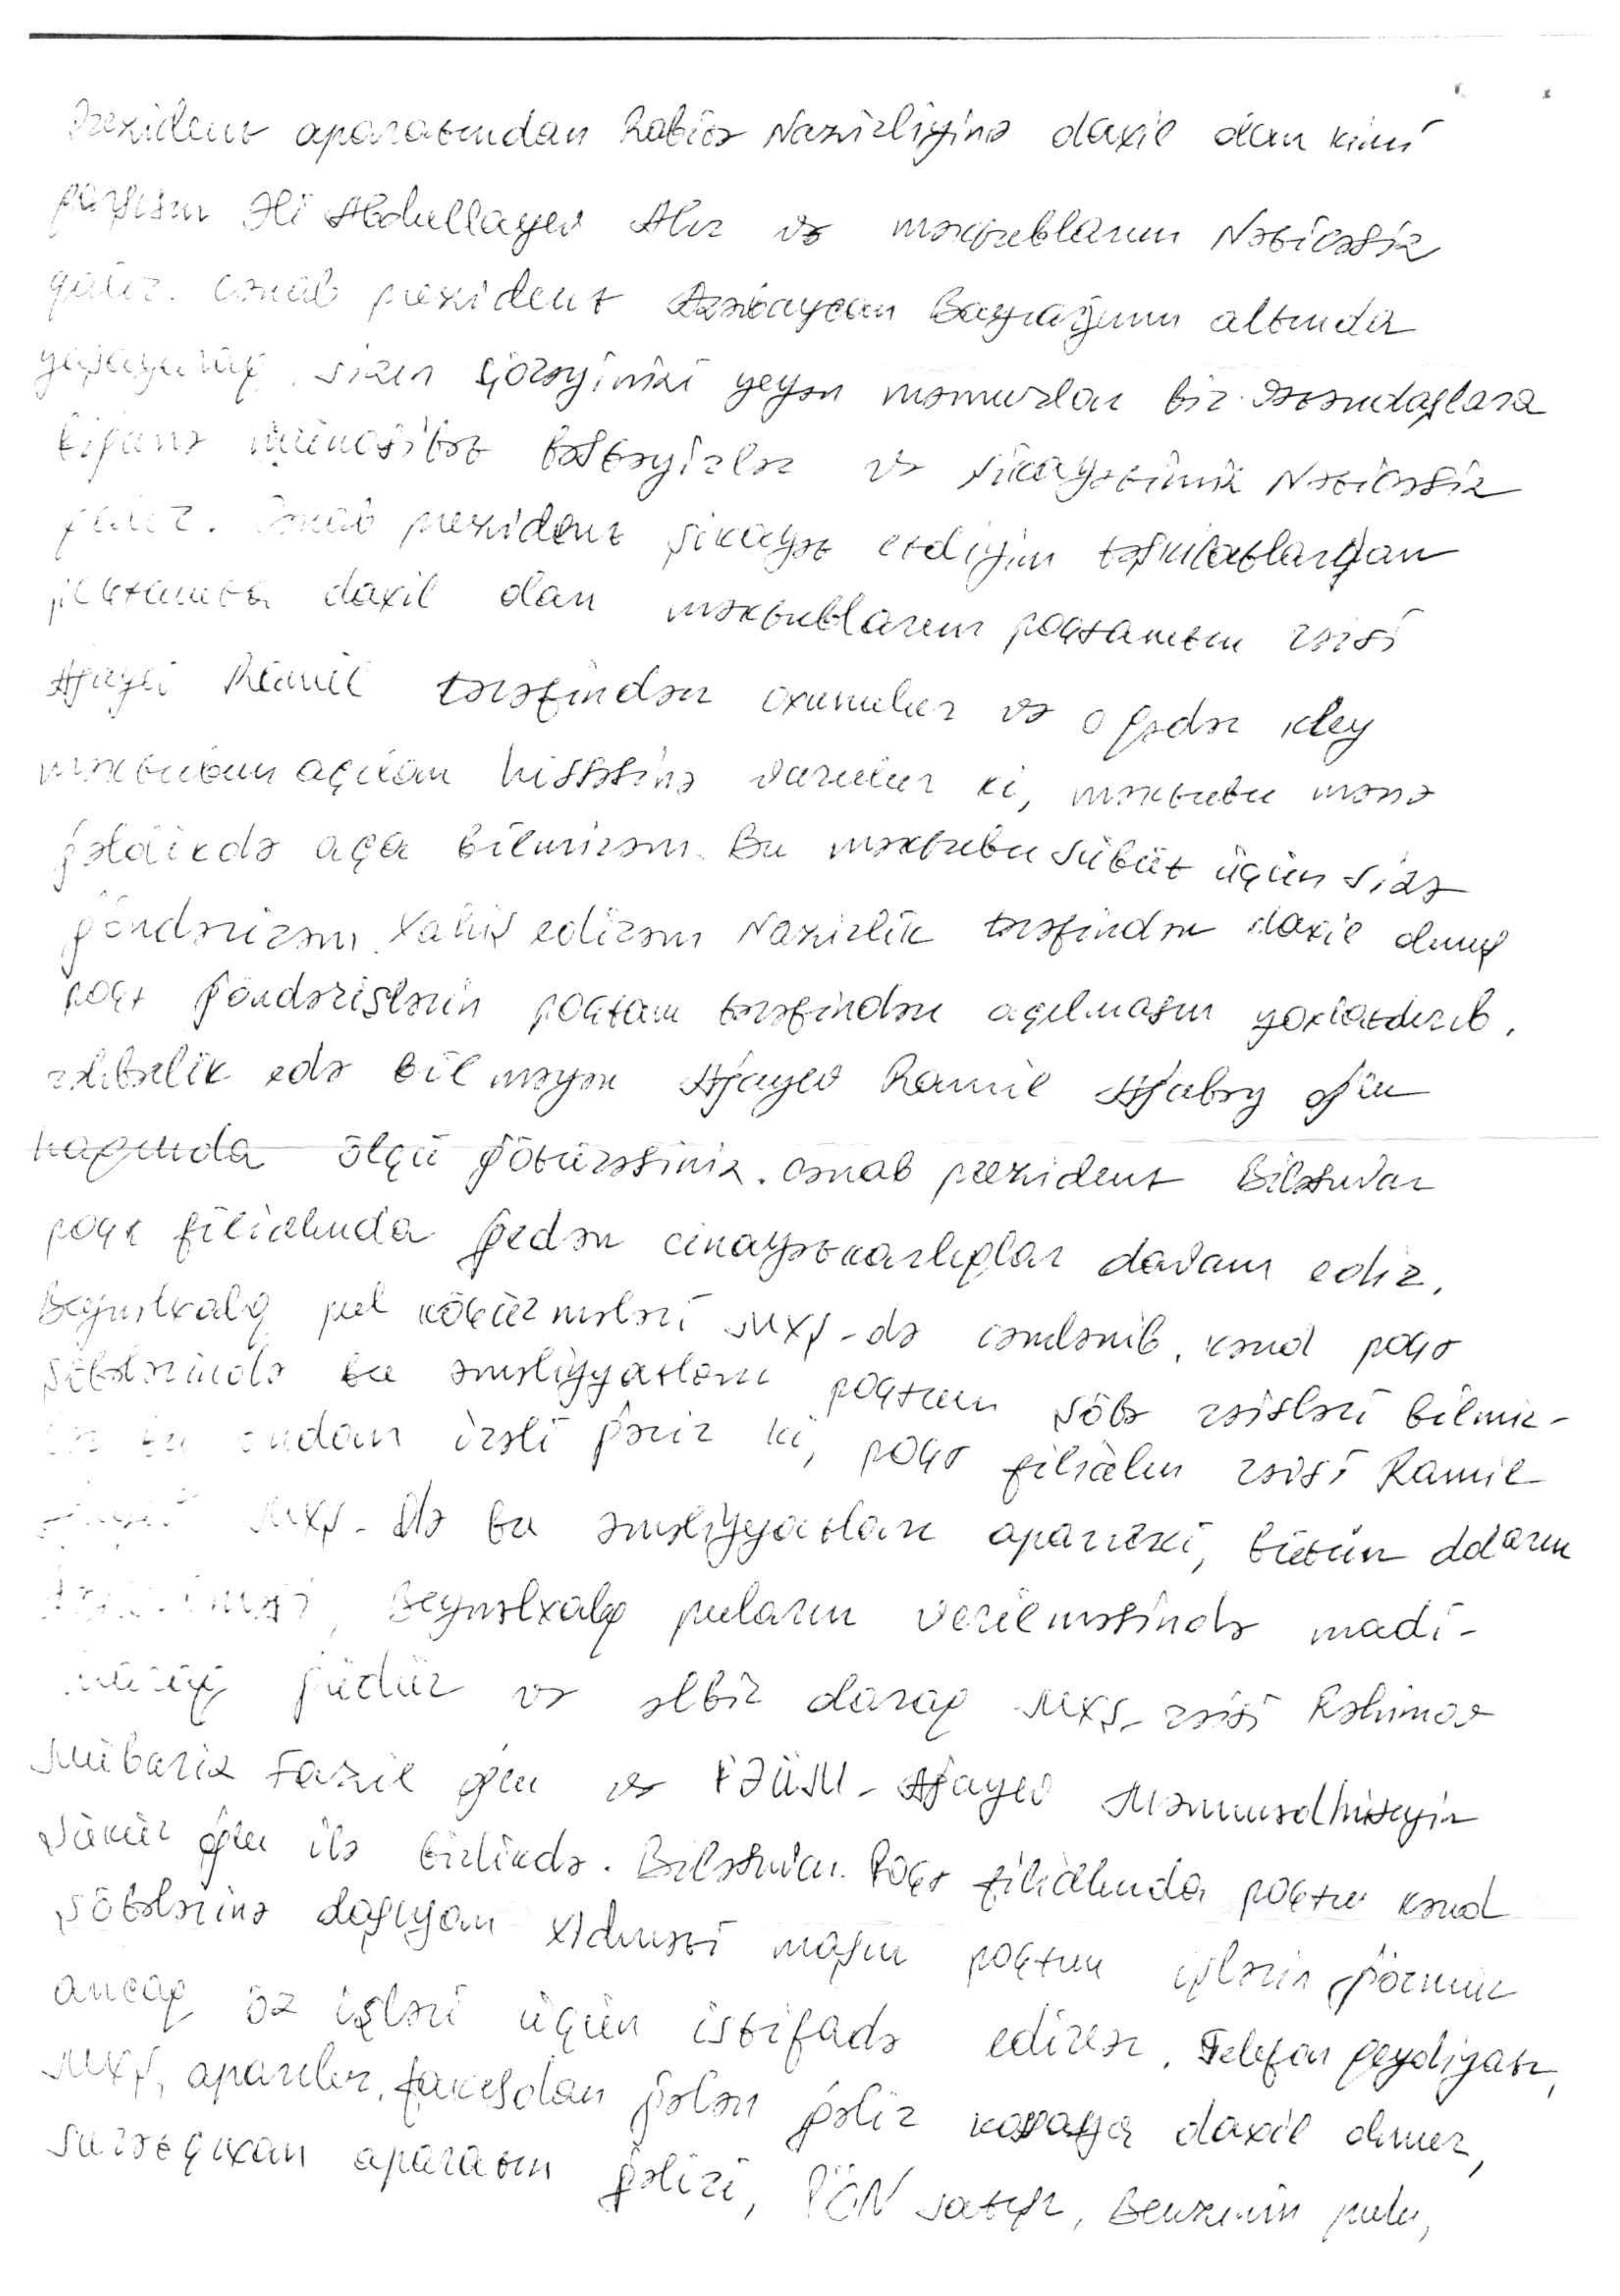 Prezident aparatından Rabitə Nazirliyinə daxil olan kimi
payısın Əli Abdullayev Alır və məktubların Nəticəsiz
qalır. Cənab prezident Azərbaycan Bayrağının altında
yaşayaraq, sizin çörəyinizi yeyən məmurlar biz vətəndaşlara
biganə münasibət bəsləyirlər və şikayətimiz Nəticəsiz
qalır. Cənab prezident şikayət etdiyim təşkilatlardan
poçtamta daxil olan məktubların poçtamtın rəisi
Ağayev Ramil tərəfindən oxunulur və o qədər kley
məktubun açılan hissəsinə vurulur ki, məktubu mənə
gəldikdə aça bilmirəm. Bu məktubu sübut üçün sizə
göndərirəm. Xahiş edirəm Nazirlik tərəfindən daxil olmuş
poçt göndərişlərin poçtam tərəfindən açılmasın yoxlatdırıb,
rəhbərlik edə bilməyən Ağayev Ramil Ağabəy oğlu
haqında ölçü götürəsiniz. Cənab prezident Biləsuvar
poçt filialında gedən cinayətkarlıqlar davam edir.
Beynəlxalq pul köçürmələri MXŞ-də cəmlənib, kənd poçt
şöbələrində bu əməliyyatları poçtun şöbə rəisləri bilmir-
lər bu ondan irəli gəlir ki, poçt filialın rəisi Ramil
Ağayev MXŞ-də bu əməliyyatları aparırki, bütün dolların
Beynəlxalq pulların verilməsində madi-
güdür və əlbir olaraq MXŞ-rəisi Rəhimov
Mübariz Fazil oğlu və FƏÜM-Ağayev Məmmədhüseyin
Şükür oğlu ilə birlikdə. Biləsuvar Poçt filialında poçtu kənd
şöbələrinə daşıyan xidməti maşın poçtun işlərin görmür
ancaq öz işləri üçün istifadə edirlər. Telefon qeydiyatı,
MXŞ, aparılır, faksdan gələn gəlir kassaya daxil olmur,
surətçıxan aparatın gəliri, PÖN satışı, Benzinin pulu,